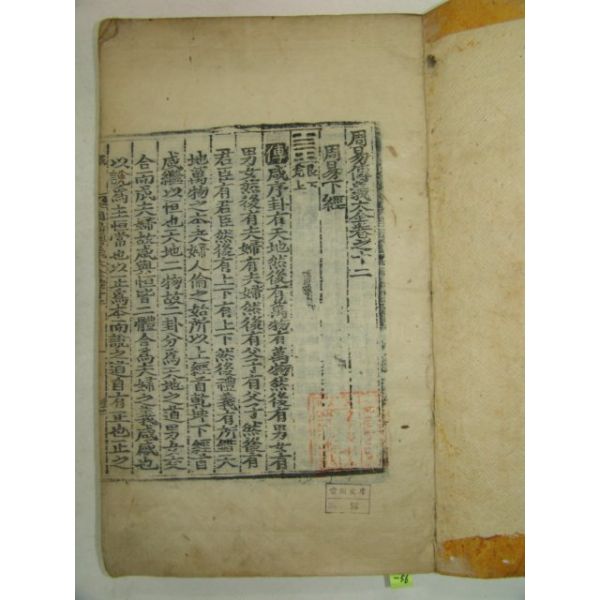 周易傳義大全卷之十二
周易下經
艮下
兌上
傳咸序卦有天地然後有萬物有萬物然後有男女有
男女然後有夫婦有夫婦然後有父子有父子然後有
君臣有君臣然後有上下有上下然後禮義有所錯天
地萬物之本夫婦人倫之始所以上經首乾坤下經首
咸繼以恒也天地二物故二卦分爲天地之道男女交
合而成夫婦故咸與恒皆二體合爲夫婦之義咸感也
以說爲主恒常也以正爲本而說之道自有正也正之